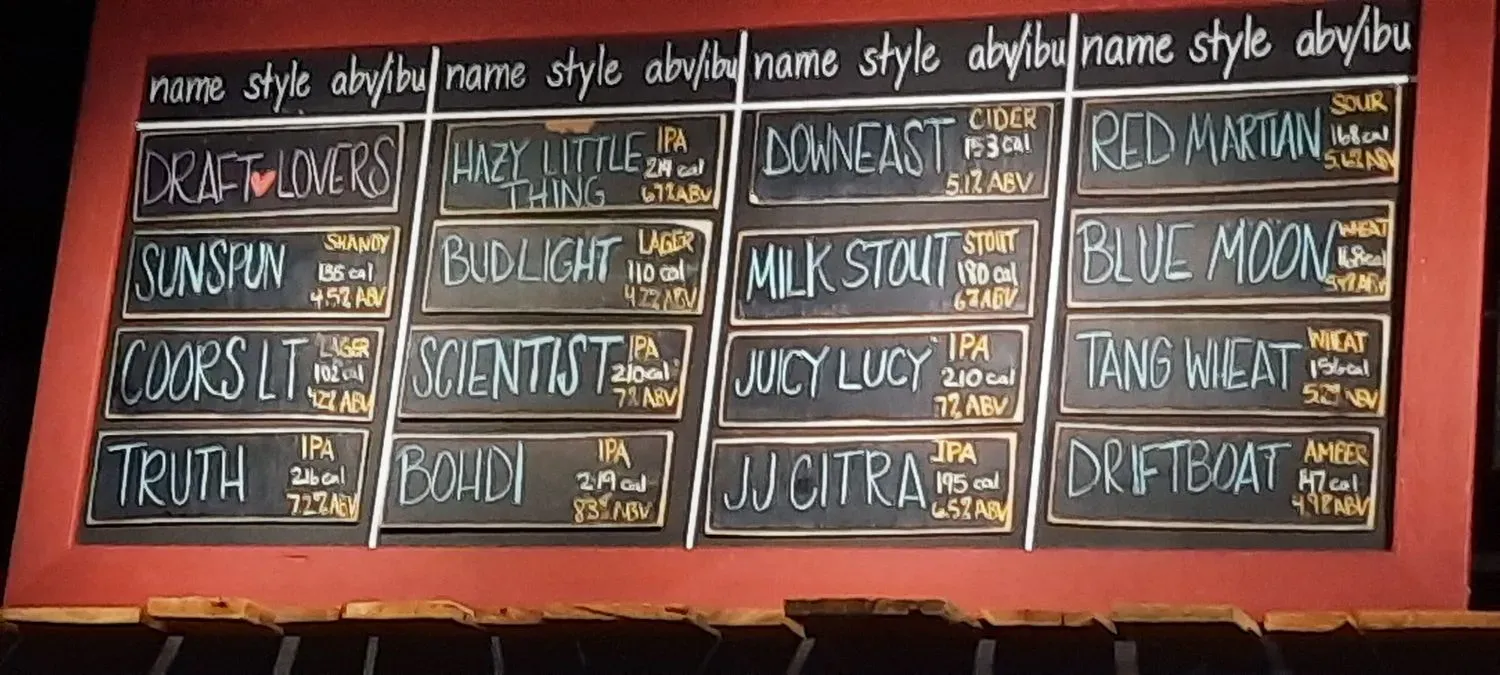 name style abv/ibu
DRAFT LOVERS
SUNSPUN
SHANDY
135 cal
4.5% ABV
COORS LT
LAGER
102 cal
4.2% ABV
TRUTH
IPA
216 cal
7.2% ABV
name style abv/ibu
HAZY LITTLE
THING
IPA
219 cal
6.7% ABV
BUD LIGHT
LAGER
110 cal
4.2% ABV
SCIENTIST
IPA
210 cal
7% ABV
BOHDI
IPA
249 cal
8.3% ABV
name style abv/ibu
DOWNEAST
CIDER
153 cal
5.1% ABV
MILK STOUT
STOUT
180 cal
6% ABV
JUICY LUCY
IPA
210 cal
7% ABV
JJ CITRA
IPA
195 cal
6.5% ABV
name style abv/ibu
RED MARTIAN
SOUR
168 cal
ABV
BLUE MOON
WHEAT
cal
ABV
TANG WHEAT
WHEAT
156 cal
ABV
DRIFTBOAT
AMBER
147 cal
4.9% ABV